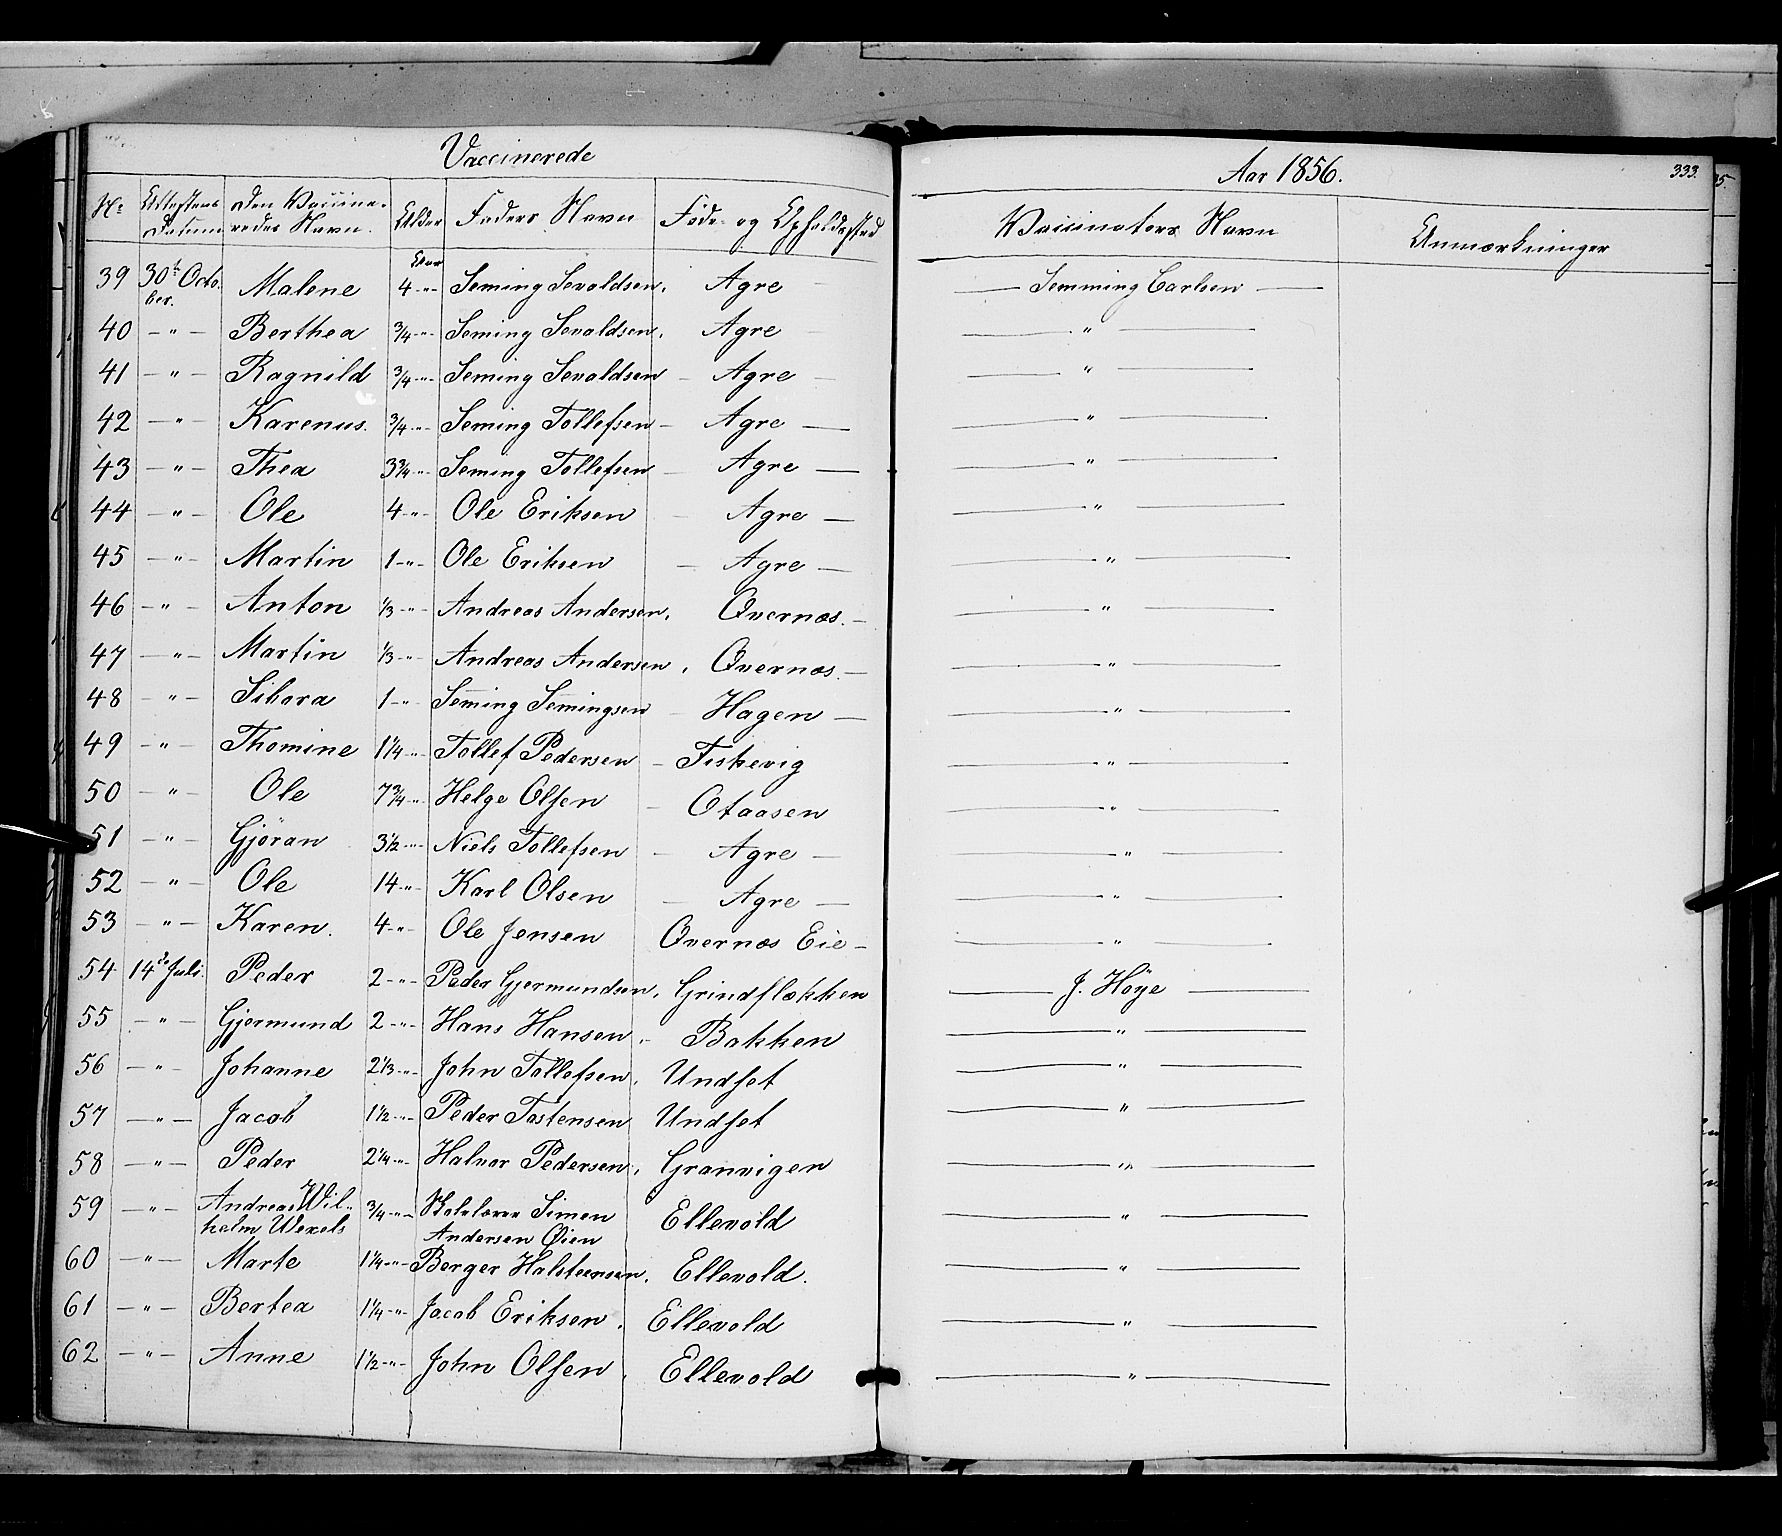 Vaccinerede
Aar 1856.
333.
No Attestens Datum Den Vaccineredes Navn. Alder Faders Navn Føde- og Opholdssted Vaccinators Navn Anmærkninger
Aar
39 30te October. Malene 4 -"- Seming Sevaldsen. Agre — Semming Carlsen —
40 — " — Berthea 3/4 -"- Seming Sevaldsen. Agre — " —
41 — " — Ragnild 3/4 -"- Seming Sevaldsen — Agre — " —
42 — " — Karenus. 3/4 -"- Seming Tollefsen — Agre — — " —
43 — " — Thea 3 3/4 -"- Seming Tollefsen — Agre — — " —
44 — " — Ole 4 -"- Ole Eriksen — Agre — — " —
45 — " — Martin 1 -"- Ole Eriksen — Agre — — " —
46 — " — Anton 1/3 -"- Andreas Andersen. Overnæs. — — " —
47 — " — Martin 1/3 -"- Andreas Andersen. Overnæs. — — " —
48 — " — Sibora 1 -"- Seming Semingsen — Hagen — — " —
49 — " — Thomine 1 1/4 -"- Tollef Pedersen — Fiskevig — " —
50 — " — Ole 7 3/4 -"- Helge Olsen — Otaasen — " —
51 — " — Gjöran 3 1/2 -"- Niels Tollefsen — Agre — — " —
52 — " — Ole 14 -"- Karl Olsen — Agre — — " —
53 — " — Karen. 4 -"- Ole Jensen Overnæs Eie — — " —
54 14de Juli. Peder 2 -"- Peder Gjermundsen. Grindflækken — J. Höye —
55 — " — Gjermund 2 -"- Hans Hansen. — Bakken — " —
56 — " — Johanne 2 1/3 -"- John Tollefsen. Undset — " —
57 — " — Jacob 1 1/2 -"- Peder Tostensen Undset — " —
58 — " — Peder 2 1/4 -"- Halvor Pedersen. Granvigen — " —
59 — " — Andreas Wil-
helm Wexels 3/4 -"- Skolelærer Simen
Andersen Øien Ellevold — " —
60 — " — Marte 1 1/4 -"- Berger Halsteensen. Ellevold. — " —
61 — " — Bertea 1 1/4 -"- Jacob Eriksen. Ellevold — " —
62 — " — Anne 1 1/2 -"- John Olsen. Ellevold — " —